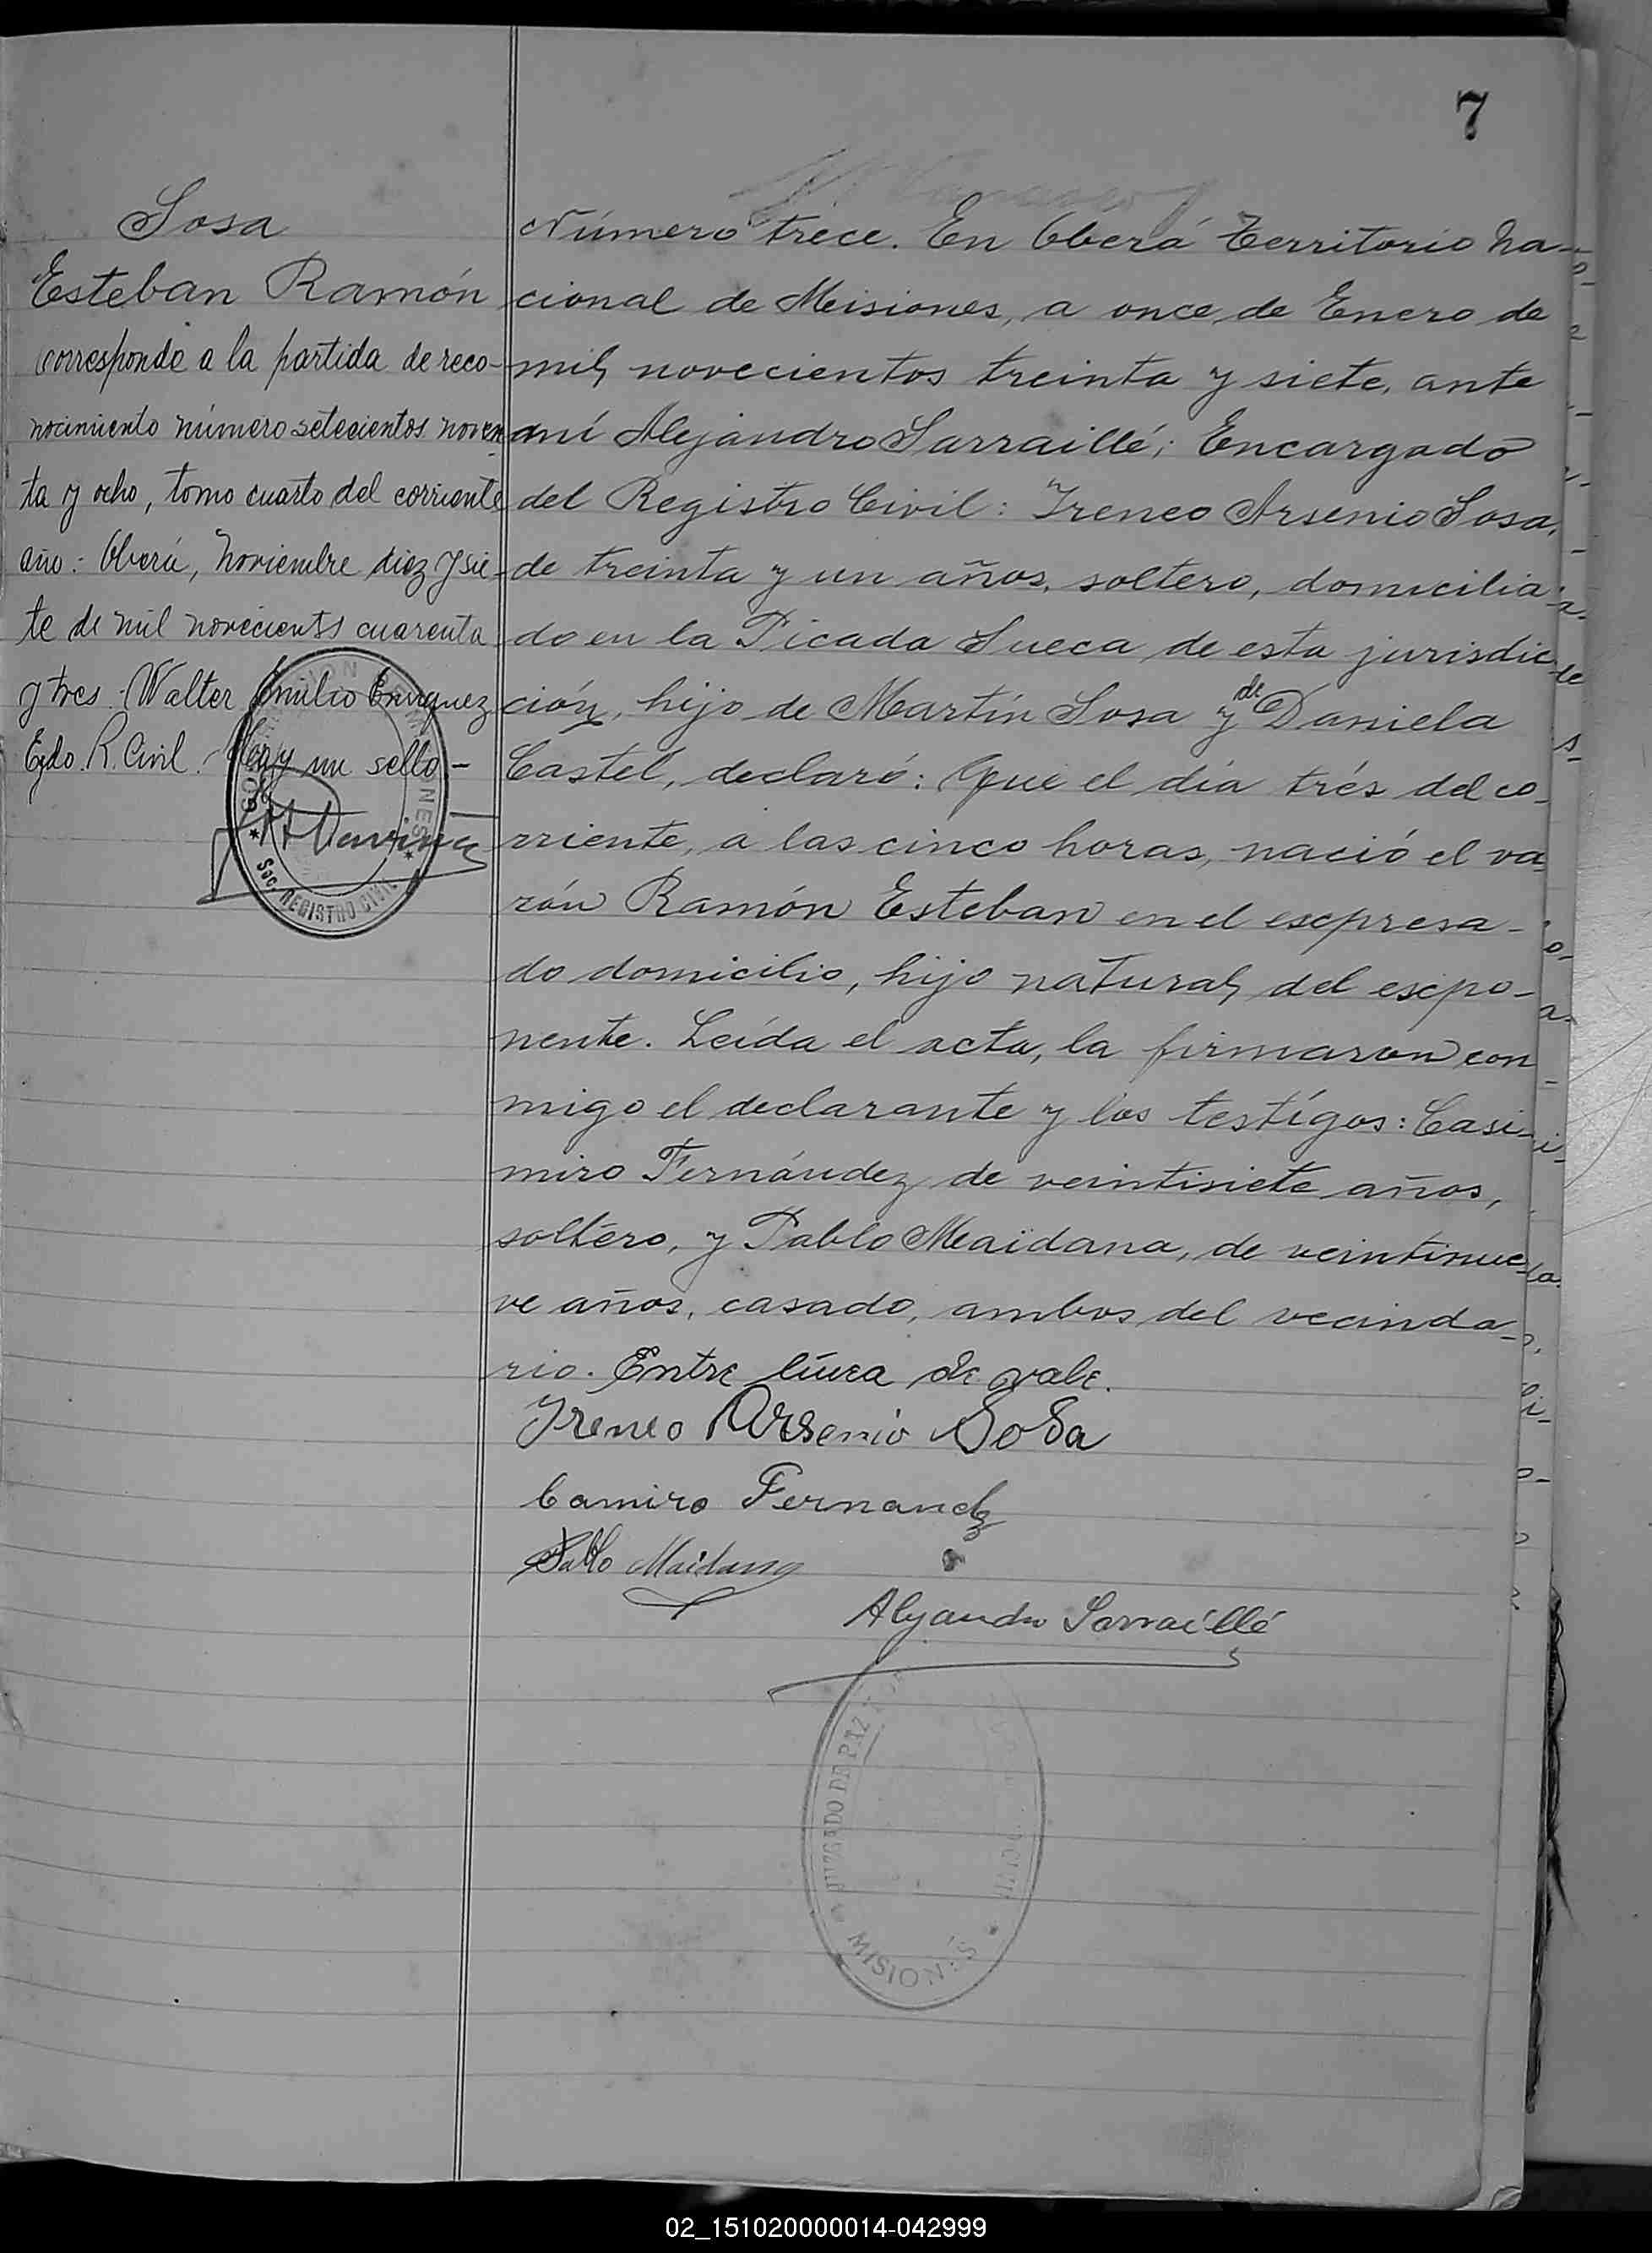 7
Sosa
Esteban Ramón
corresponde a la partida de reco-
nocimiento número setecientos noven
ta y ocho, tomo cuarto del corriente
año: Oberá, Noviembre diez y sie-
te de mil novecientos cuarenta
y tres.- Walter Emilio Enriquez
Egdo. R. Civil. Hay un sello -
Sec. REGISTRO CIVIL
Número trece. En Oberá Territorio Na-
cional de Misiones, a once de Enero de
mil novecientos treinta y siete, ante
mí Alejandro Sarraillé; Encargado
del Registro Civil: Ireneo Arsenio Sosa,
de treinta y un años, soltero, domicilia
do en la Picada Sueca de esta jurisdic
ción, hijo de Martín Sosa y de Daniela
Castel, declaró: Que el día trés del co-
rriente, a las cinco horas, nació el va
rón Ramón Esteban en el escpresa-
do domicilio, hijo natural del escpo-
nente. Leída el acta, la firmaron con
migo el declarante y los testígos: Casi-
miro Fernández de veintisiete años,
soltéro, y Pablo Maidana, de veintinue
ve años, casado, ambos del vecinda-
rio. Entre línea de vale.
Ireneo Arsenio Sosa
Camiro Fernandz
Pablo Maidana
Alejandro Sarraillé
JUZGADO DE PAZ
MISIONES
02_151020000014-042999